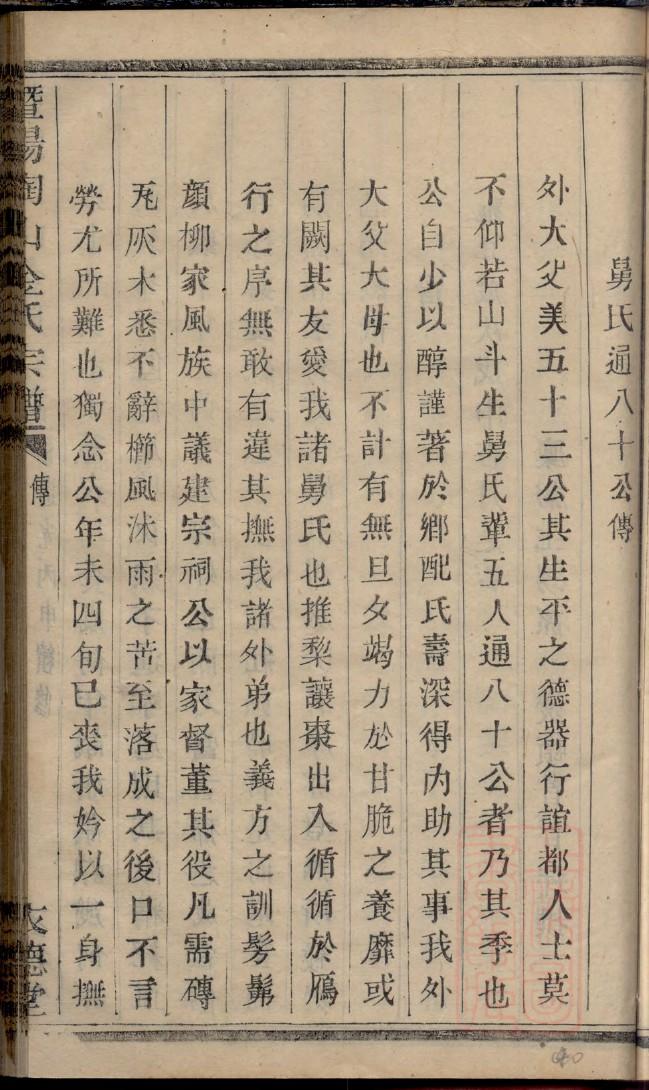 舅氏通八十公傳
外大父美五十三公其生平之德器行誼都人士莫
不仰若山斗生舅氏輩五人通八十公者乃其季也
公自少以醇謹著於鄉配氏壽深得內助其事我外
大父大母也不計有無旦夕竭力於甘脆之養靡或
有闕其友愛我諸舅氏也推梨讓棗出入循循於鴈
行之序無敢有違其撫我諸外弟也義方之訓髣髴
顏柳家風族中議建宗祠公以家督董其役凡需磚
瓦灰木悉不辭櫛風沐雨之苦至落成之後口不言
勞尤所難也獨念公年未四旬已喪我妗以一身撫
暨陽陶山金氏宗譜
傳
友德堂